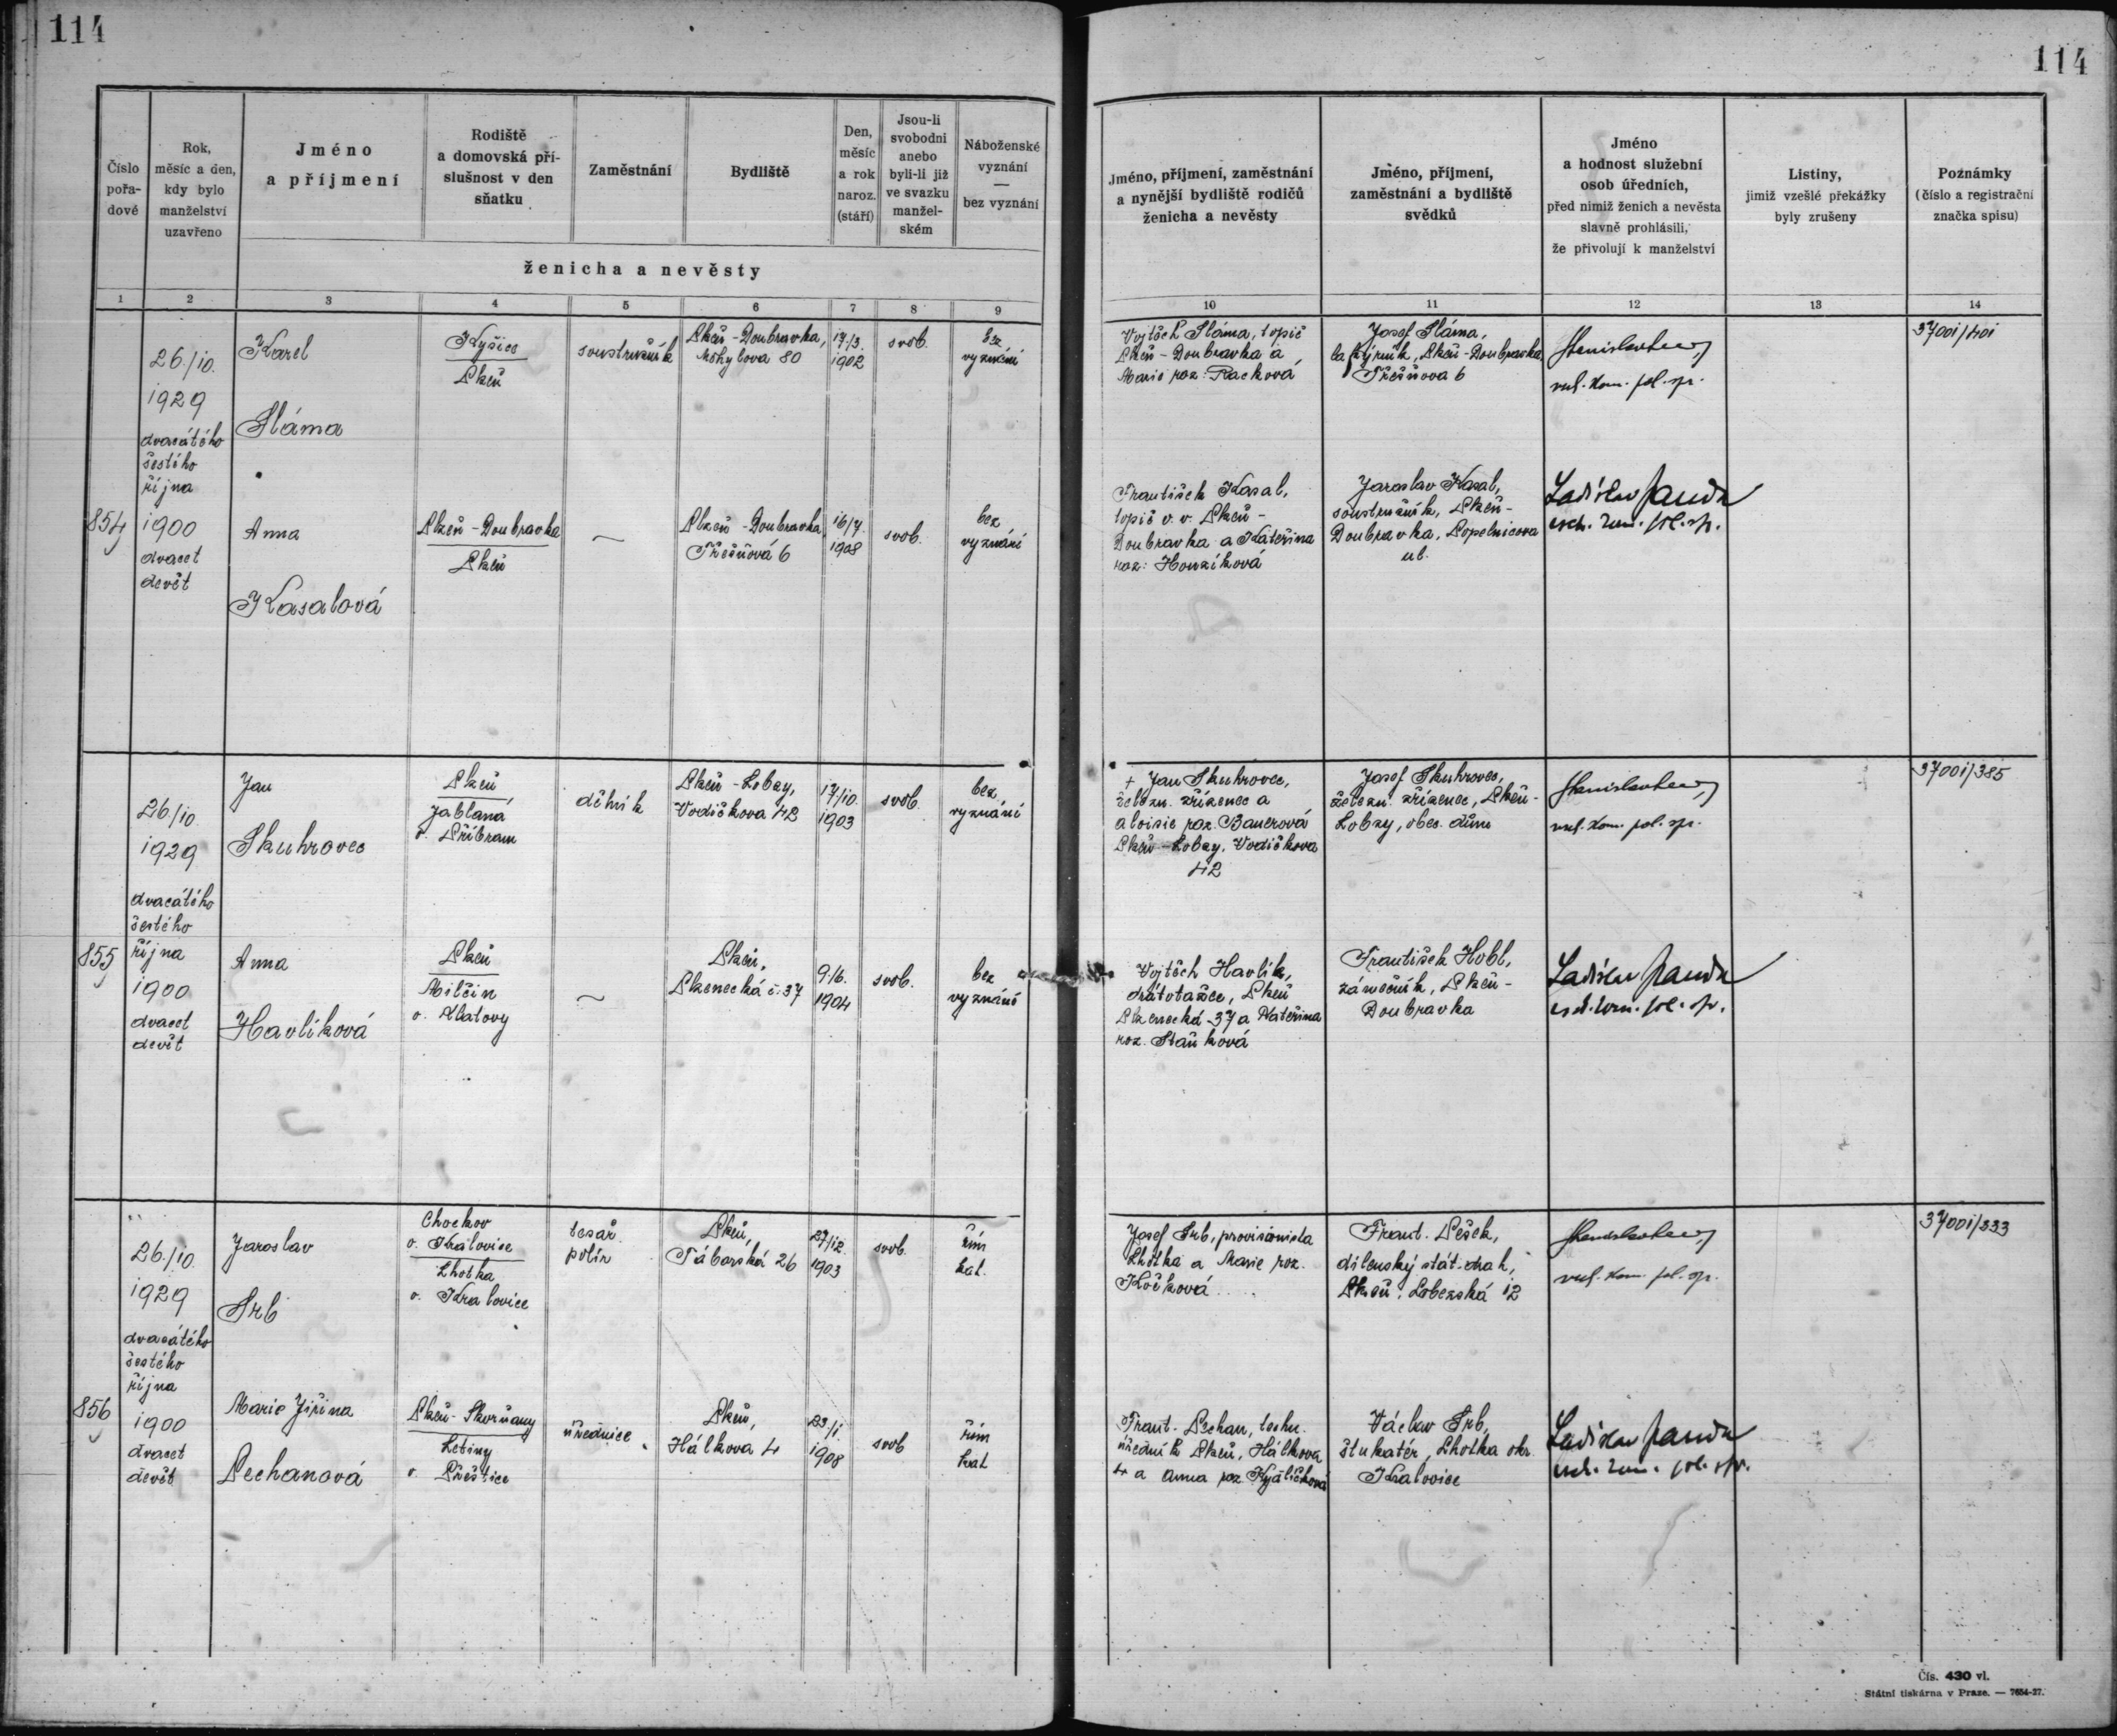 114
114
Číslo
pořa-
dové
Rok,
měsíc a den,
kdy bylo
manželství
uzavřeno
Jméno
a příjmení
Rodiště
a domovská pří-
slušnost v den
sňatku
Zaměstnání
Bydliště
Den,
měsíc
a rok
naroz.
(stáří)
Jsou-li
svobodni
anebo
byli-li již
ve svazku
manžel-
ském
Náboženské
vyznání
—
bez vyznání
ženicha a nevěsty
Jméno, příjmení, zaměstnání
a nynější bydliště rodičů
ženicha a nevěsty
Jméno, příjmení,
zaměstnání a bydliště
svědků
Jméno
a hodnost služební
osob úředních,
před nimiž ženich a nevěsta
slavně prohlásili,
že přivolují k manželství
Listiny,
jimiž vzešlé překážky
byly zrušeny
Poznámky
(číslo a registrační
značka spisu)
1 2 3 4 5 6 7 8 9 10 11 12 13 14
854
26./10.
1929
dvacátého
šestého
října
1900
dvacet
devět
Karel
Sláma
Kyšice
Plzeň
soustružník
Plzeň-Doubravka,
Mohylova 80
17./3.
1902
svob.
bez
vyznání
Vojtěch Sláma, topič
Plzeň-Doubravka a
Marie roz: Racková
Josef Sláma,
Plzeň-Doubravka,
Třešňova 6
37001/401
Anna
Kasalová
Plzeň-Doubravka
Plzeň
Plzeň-Doubravka
Třešňová 6
16/7.
1908
svob.
bez
vyznání
František Kasal,
topič v. v. Plzeň-
Doubravka a Kateřina
roz: Houzíková
Jaroslav Kasal,
soustružník, Plzeň-
Doubravka, Popelnicova
ul.
Ladislav Janda
855
26./10.
1929
dvacátého
šestého
října
1900
dvacet
devět
Jan
Skuhrovec
Plzeň
Jablaná
o. Příbram
dělník
Plzeň-Lobzy,
Vodičkova 42
17/10.
1903
svob.
bez
vyznání
+ Jan Skuhrovec,
železn. zřízenec a
Aloisie roz. Bauerová
Plzeň-Lobzy, Vodičkova
42
Josef Skuhrovec,
železn. zřízenec, Plzeň-
Lobzy, obec. dům
37001/385
Anna
Havlíková
Plzeň
Milčin
o. Klatovy
Plzeň,
Plzenecká č. 37
9./6.
1904
svob.
bez
vyznání
Vojtěch Havlík,
drátotažec, Plzeň
Plzenecká 37 a Kateřina
roz. Staňková
František Hobl,
zámečník, Plzeň-
Doubravka
Ladislav Janda
856
26./10.
1929
dvacátého
šestého
října
1900
dvacet
devět
Jaroslav
Srb
Chockov
o. Kralovice
Lhotka
o. Kralovice
tesař.
polír
Plzeň,
Táborská 26
27/12.
1903
svob.
řím
kat.
Josef Srb, provisionista
Lhotka a Marie roz.
Kočková
Frant. Pešek,
dílenský stát. drah,
Plzeň, Lobezská 12
37001/333
Marie Jiřina
Pechanová
Plzeň-Skvrňany
Letiny
o. Přeštice
úřednice
Plzeň,
Hálkova 4
23./1.
1908
svob
řím
kat
Frant. Pechan, techn.
úředník Plzeň, Hálkova
4 a Anna roz.
Václav Srb,
štukatér, Lhotka okr.
Kralovice
Ladislav Janda
Čís. 430 vl.
Státní tiskárna v Praze. — 7654-27.